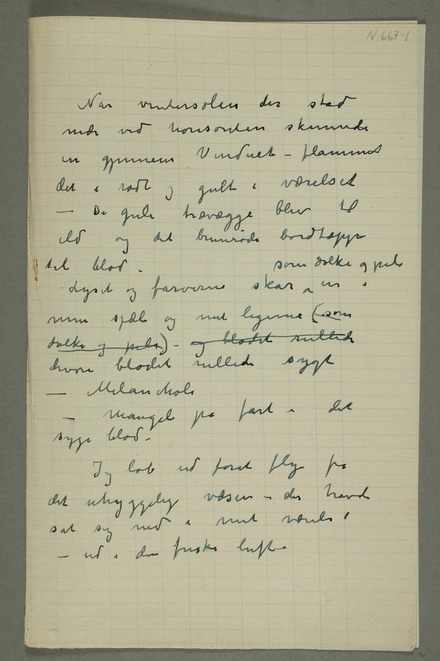 N 667-1
Når vintersolen der stod
nede ved horisonten skinnede
in gjennem Vinduet – flammet
det i rødt og gult i værelset
– De gule trævægge blev til
ild og det brunrøde bordtæppe
til blod –
som dolke og pile
Lyset og farverne skar in i
min sjæl og mit legeme (som
dolke og pile) – og blodet rullede
hvori blodet rullede sygt
– Melancholi
– Mangel på fart i det
syge blod –
Jeg løb ud forat fly fra
det uhyggelige væsen – der havde
sat sig ned i mit værelse
– ud i den friske luft –